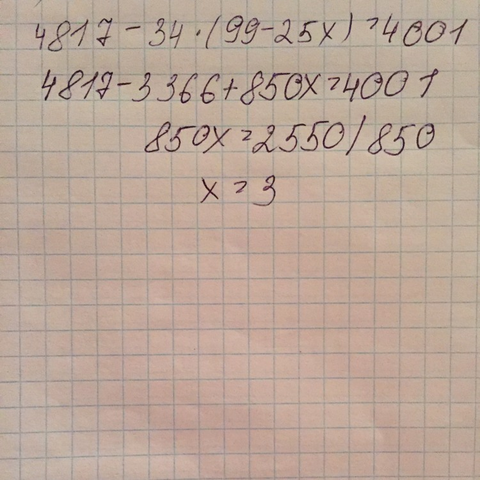 4817 - 34 · (99 - 25x) = 4001
4817 - 3366 + 850x = 4001
850x = 2550 / 850
x = 3